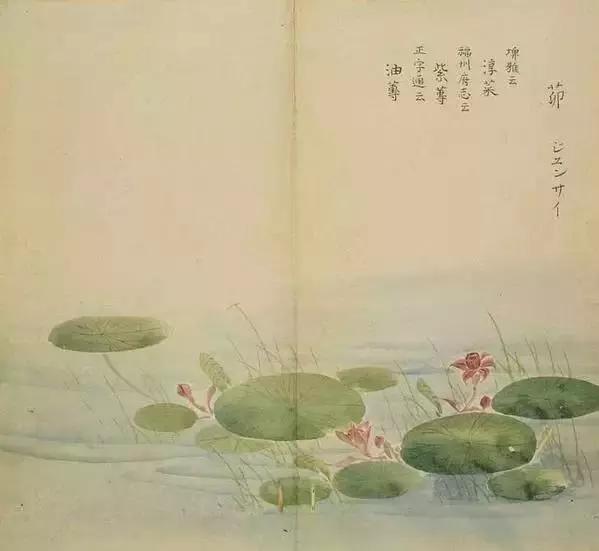 茆
ジユンサイ
埤雅云
淳菜
福州府志云
紫蓴
正字通云
油蓴